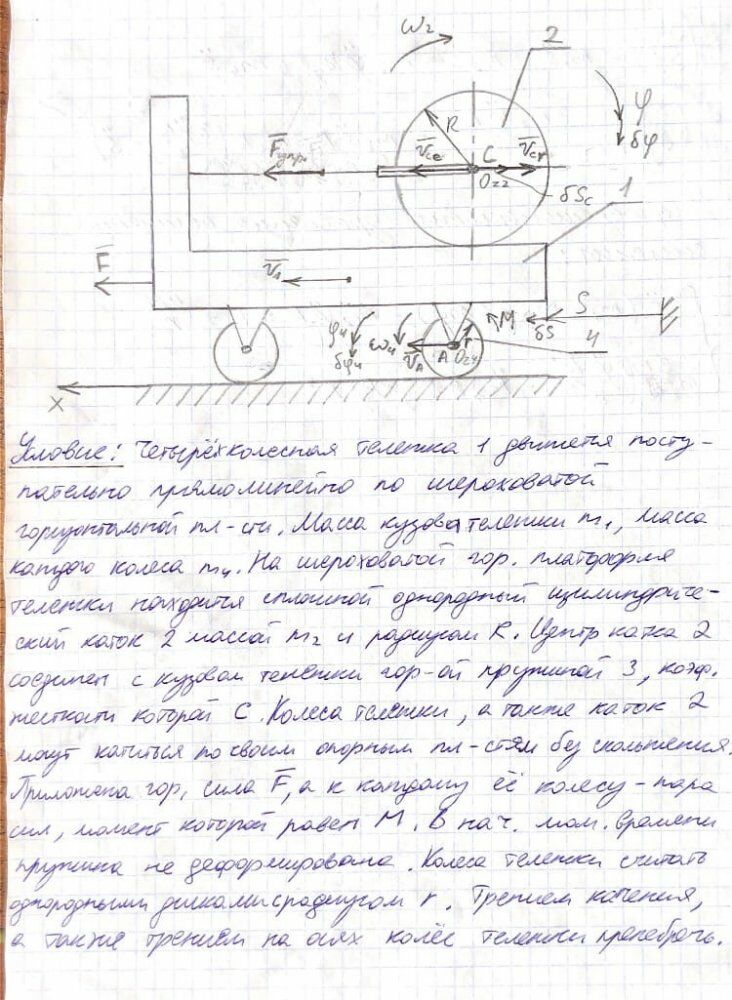 ω₂
2
R
φ
δφ
F̅упр
V̅ce
C
V̅cr
O₂₂
δSc
1
F̅
V̅₁
φ₄
δφ₄
ω₄
V̅A
A
r
M
S
δS
4
x
Условие: Четырёхколесная тележка 1 движется посту-
пательно прямолинейно по шероховатой
горизонтальной пл-сти. Масса кузова тележки m₁, масса
каждого колеса m₄. На шероховатой гор. платформе
тележки находится сплошной однородный цилиндриче-
ский каток 2 массой m₂ и радиусом R. Центр катка 2
соединен с кузовом тележки гор-ой пружиной 3, коэф.
жесткости которой C. Колеса тележки, а также каток 2
могут катиться по своим опорным пл-стям без скольжения.
Приложена гор. сила F̅, а к каждому её колесу - пара
сил, момент которой равен M. В нач. мом. времени
пружина не деформирована. Колеса тележки считать
однородными дисками с радиусом r. Трением качения,
а также трением на осях колёс тележки пренебречь.